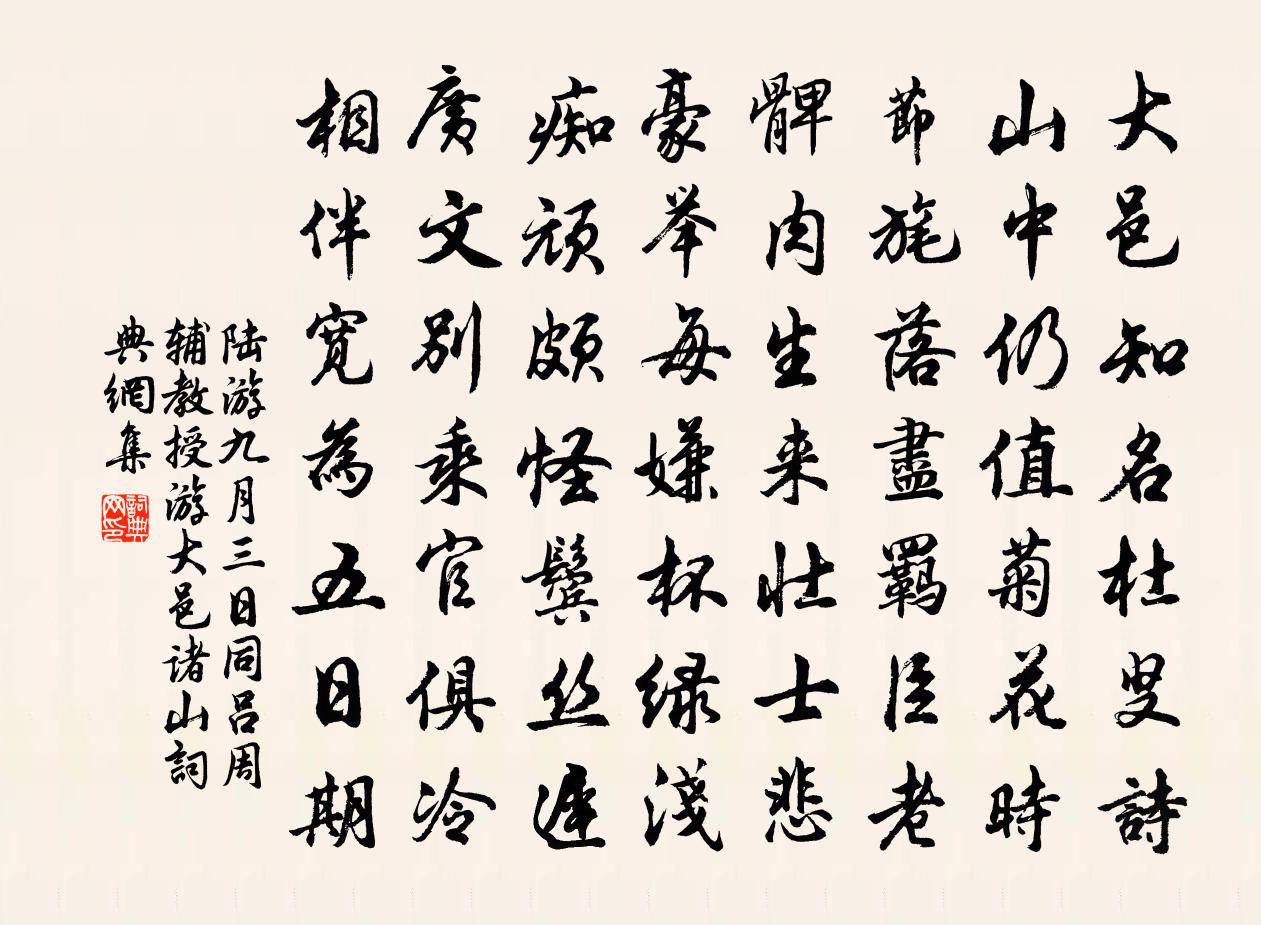 大邑知名杜叟詩
山中仍值菊花時
節旄落盡羈臣老
髀肉生来壮士悲
豪举每嫌杯绿淺
痴顽颇怪鬓丝遲
廣文别乘官俱冷
相伴寬為五日期
陆游九月三日同吕周
辅教授游大邑诸山詞
典網集
詞典網印